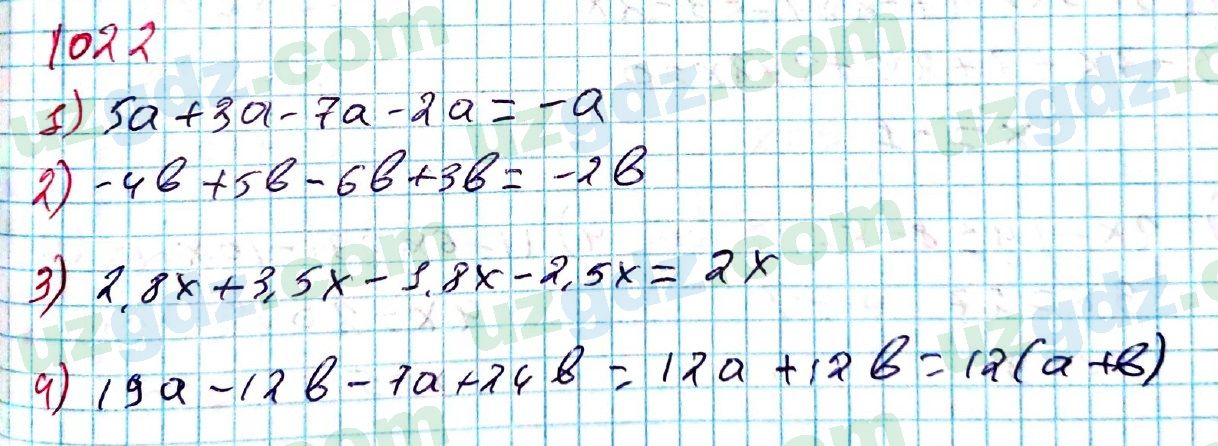 1022
1) 5a + 3a - 7a - 2a = -a
2) -4b + 5b - 6b + 3b = -2b
3) 2,8x + 3,5x - 1,8x - 2,5x = 2x
4) 19a - 12b - 7a + 24b = 12a + 12b = 12(a + b)
uzgdz.com